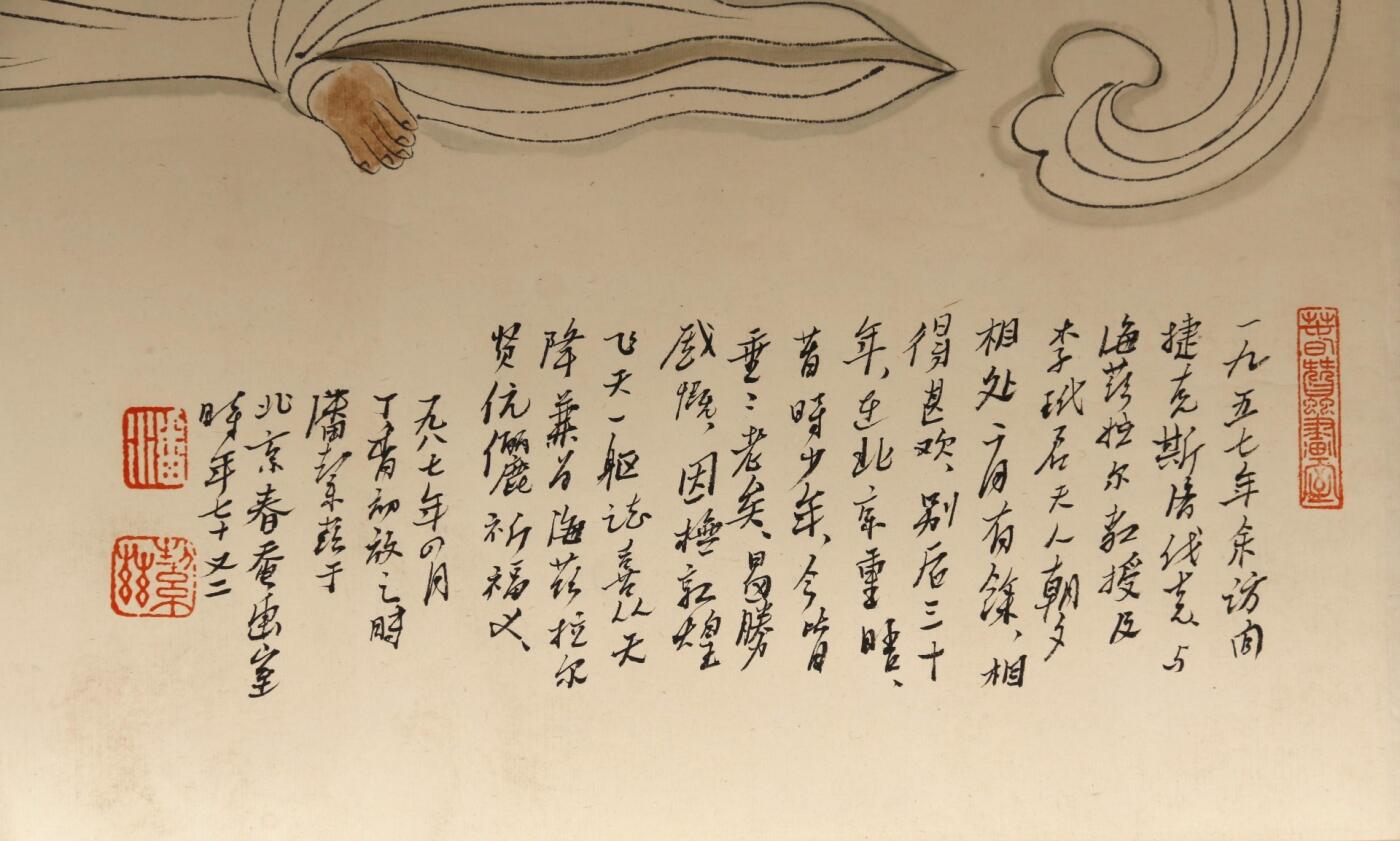 一九五七年余访问
捷克斯洛伐克、与
海兹拉尔教授及
李玳君夫人朝夕
相处二月有馀、相
得甚欢、别后三十
年、在北京重晤、
昔时少年、今皆
垂〻老矣、曷胜
感慨、因橅敦煌
飞天一躯志喜从天
降兼为海兹拉尔
贤伉俪祈福也、
一九八七年四月
丁香初放之时
潘絜兹于
北京春蚕画室
时年七十又二
潘
絜兹